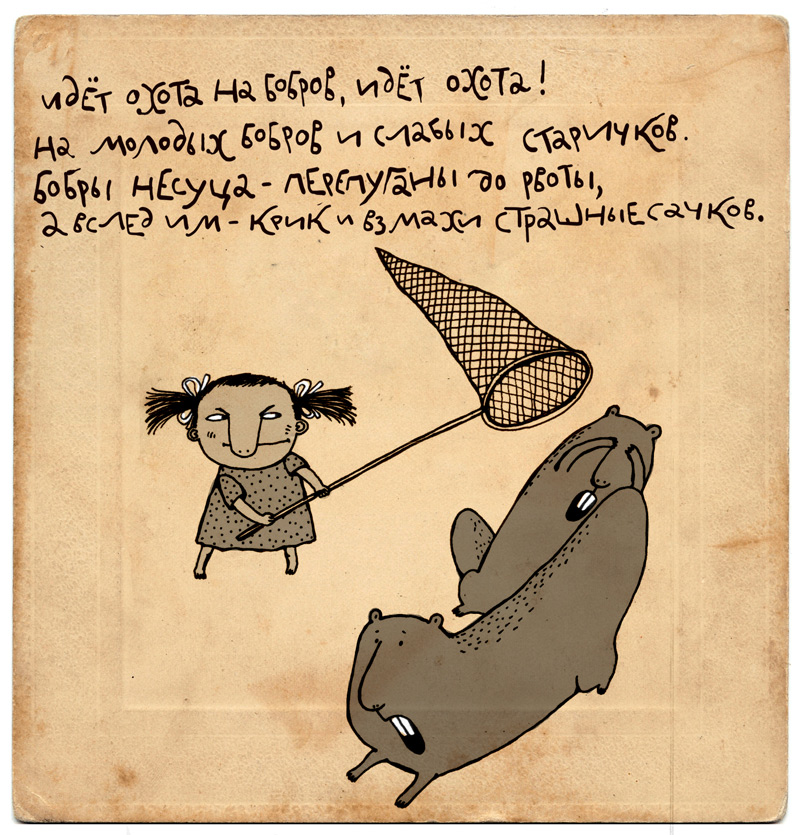 идёт охота на бобров, идёт охота!
на молодых бобров и слабых старичков.
бобры несуца - перепуганы до рвоты,
а вслед им - крик и взмахи страшные сачков.